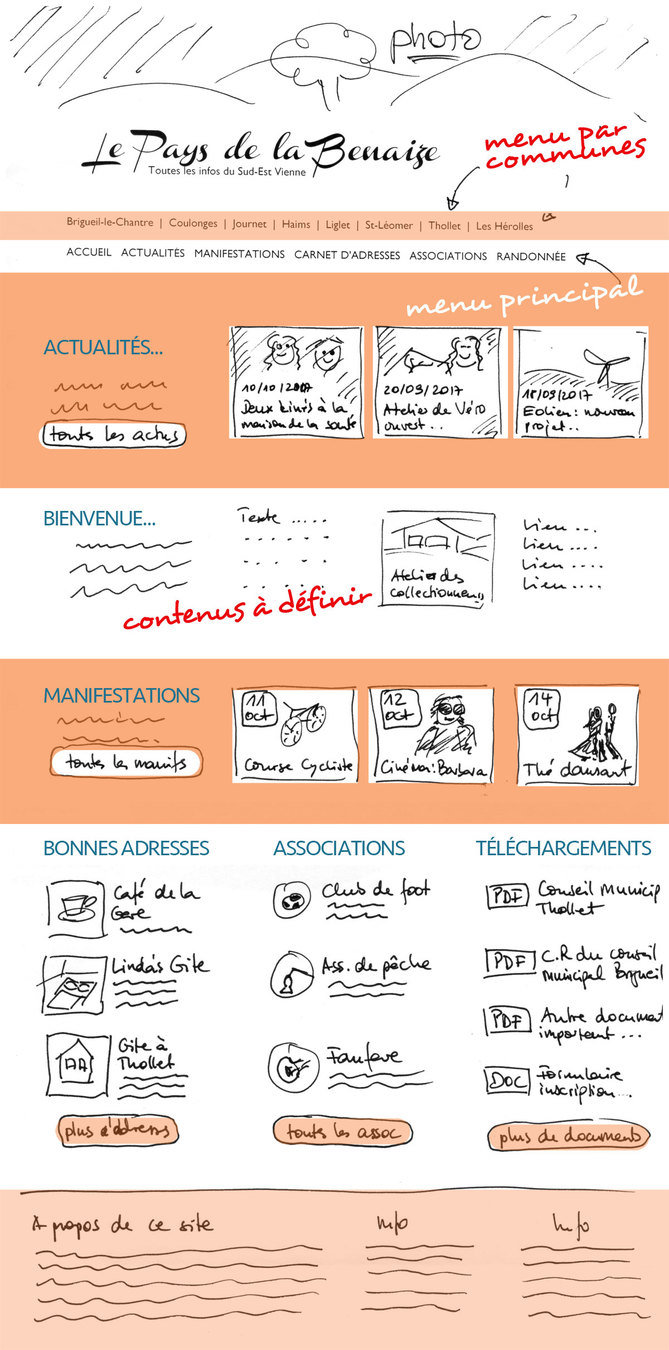 photo
Le Pays de la Benaize
Toutes les infos du Sud-Est Vienne
menu par
communes
Brigueil-le-Chantre | Coulonges | Journet | Haims | Liglet | St-Léomer | Thollet | Les Hérolles
ACCUEIL ACTUALITÉS MANIFESTATIONS CARNET D'ADRESSES ASSOCIATIONS RANDONNÉE
menu principal
ACTUALITÉS...
touts les actus
10/10/2017
Deux kinés à la
maison de la santé
20/09/2017
Atelier de Véro
ouvest..
18/09/2017
Eolien: nouveau
projet..
BIENVENUE...
Texte .....
Atelier des
collectionneurs
Lien ...
Lien ....
Lien ....
Lien ....
contenus à définir
MANIFESTATIONS
toutes les manifs
11
oct
Course Cycliste
12
oct
Cinéma: Barbara
14
oct
Thé dansant
BONNES ADRESSES
Café de la
Gare
Linda's Gite
Gite à
Thollet
plus d'adresses
ASSOCIATIONS
Club de foot
Ass. de pêche
Fanfare
touts les assoc
TÉLÉCHARGEMENTS
PDF Conseil Municip
Thollet
PDF C.R du conseil
Municipal Brigueil
PDF Autre document
important ...
DOC Formulaire
inscription...
plus de documents
A propos de ce site
Info
Info